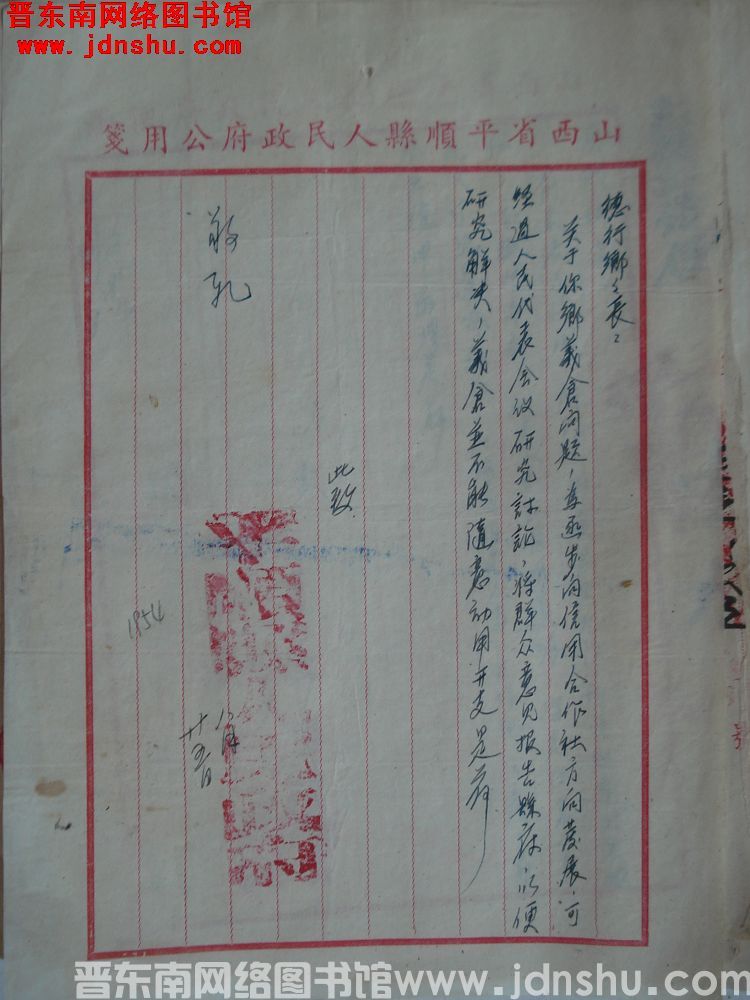 晋东南网络图书馆
www.jdnshu.com
山西省平順縣人民政府公用箋
德行鄉鄉長：
关于你鄉義倉问题，逐步向信用合作社方向发展，可
经过人民代表会议研究討論，将群众意見报告縣府，以便
研究解决，義倉並不能随意动用开支是荷
此致
敬礼
1954
八月
廿五日
晋东南网络图书馆www.jdnshu.com